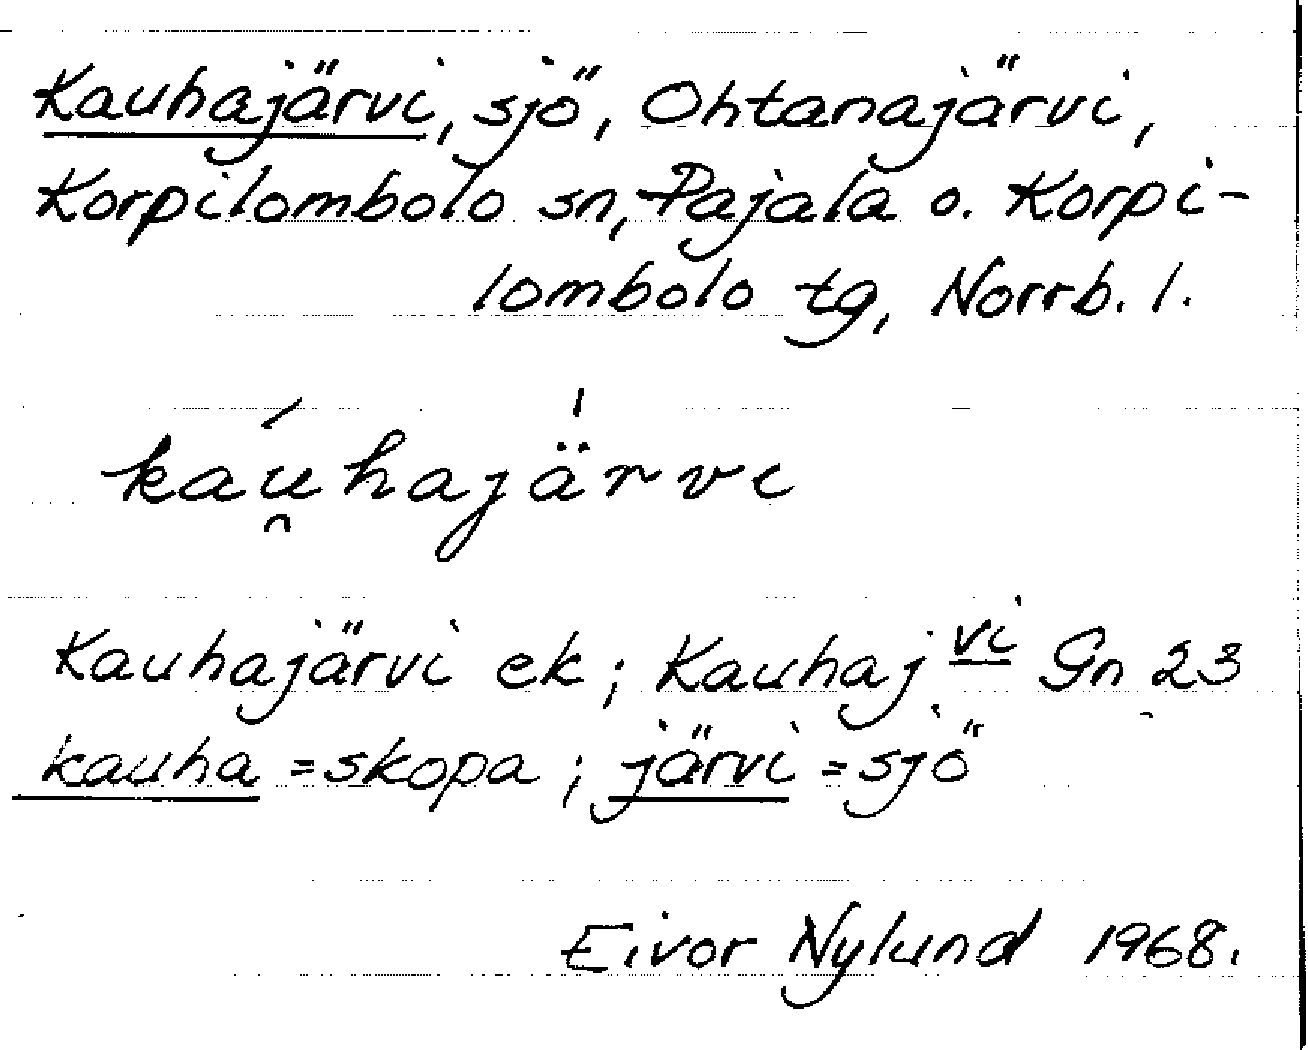 Kauhajärvi, sjö, Ohtanajärvi,
Korpilombolo sn, Pajala o. Korpi-
lombolo tg, Norrb. l.
 káu̯hajä̍rvi
Kauhajärvi ek; Kauhaj vi Gn 23
kauha = skopa ; järvi = sjö
Eivor Nylund 1968.